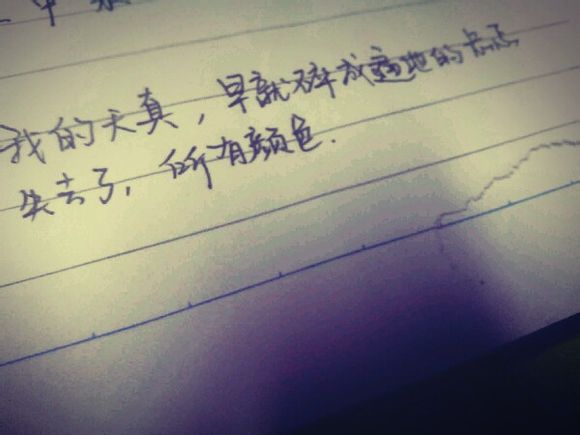 我的天真，早就碎成遍地的点点
失去了，所有颜色.